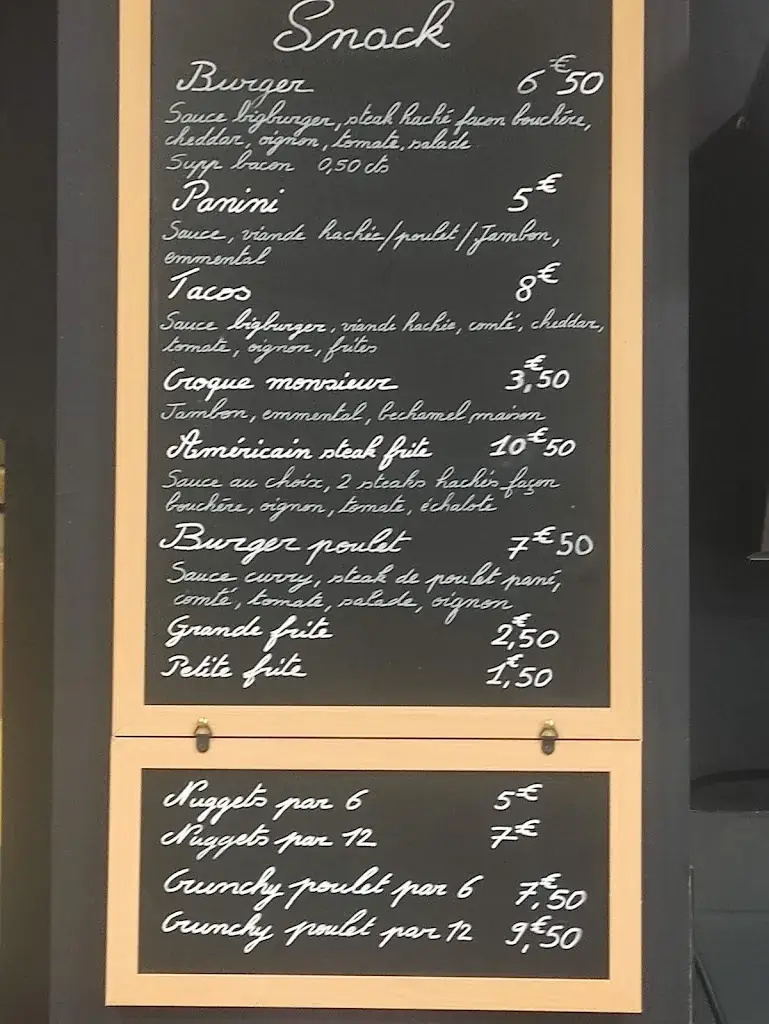 Snack
Burger 6€50
Sauce bigburger, steak haché façon bouchère,
cheddar, oignon, tomate, salade
Supp bacon 0,50 cts
Panini 5€
Sauce, viande hachée/poulet/Jambon,
emmental
Tacos 8€
Sauce bigburger, viande hachée, comté, cheddar,
tomate, oignon, frites
Croque monsieur 3,€50
Jambon, emmental, bechamel maison
Américain steak frite 10€50
Sauce au choix, 2 steaks hachés façon
bouchère, oignon, tomate, échalote
Burger poulet 7€50
Sauce curry, steak de poulet pané,
comté, tomate, salade, oignon
Grande frite 2,€50
Petite frite 1,€50
Nuggets par 6 5€
Nuggets par 12 7€
Crunchy poulet par 6 7,€50
Crunchy poulet par 12 9,€50